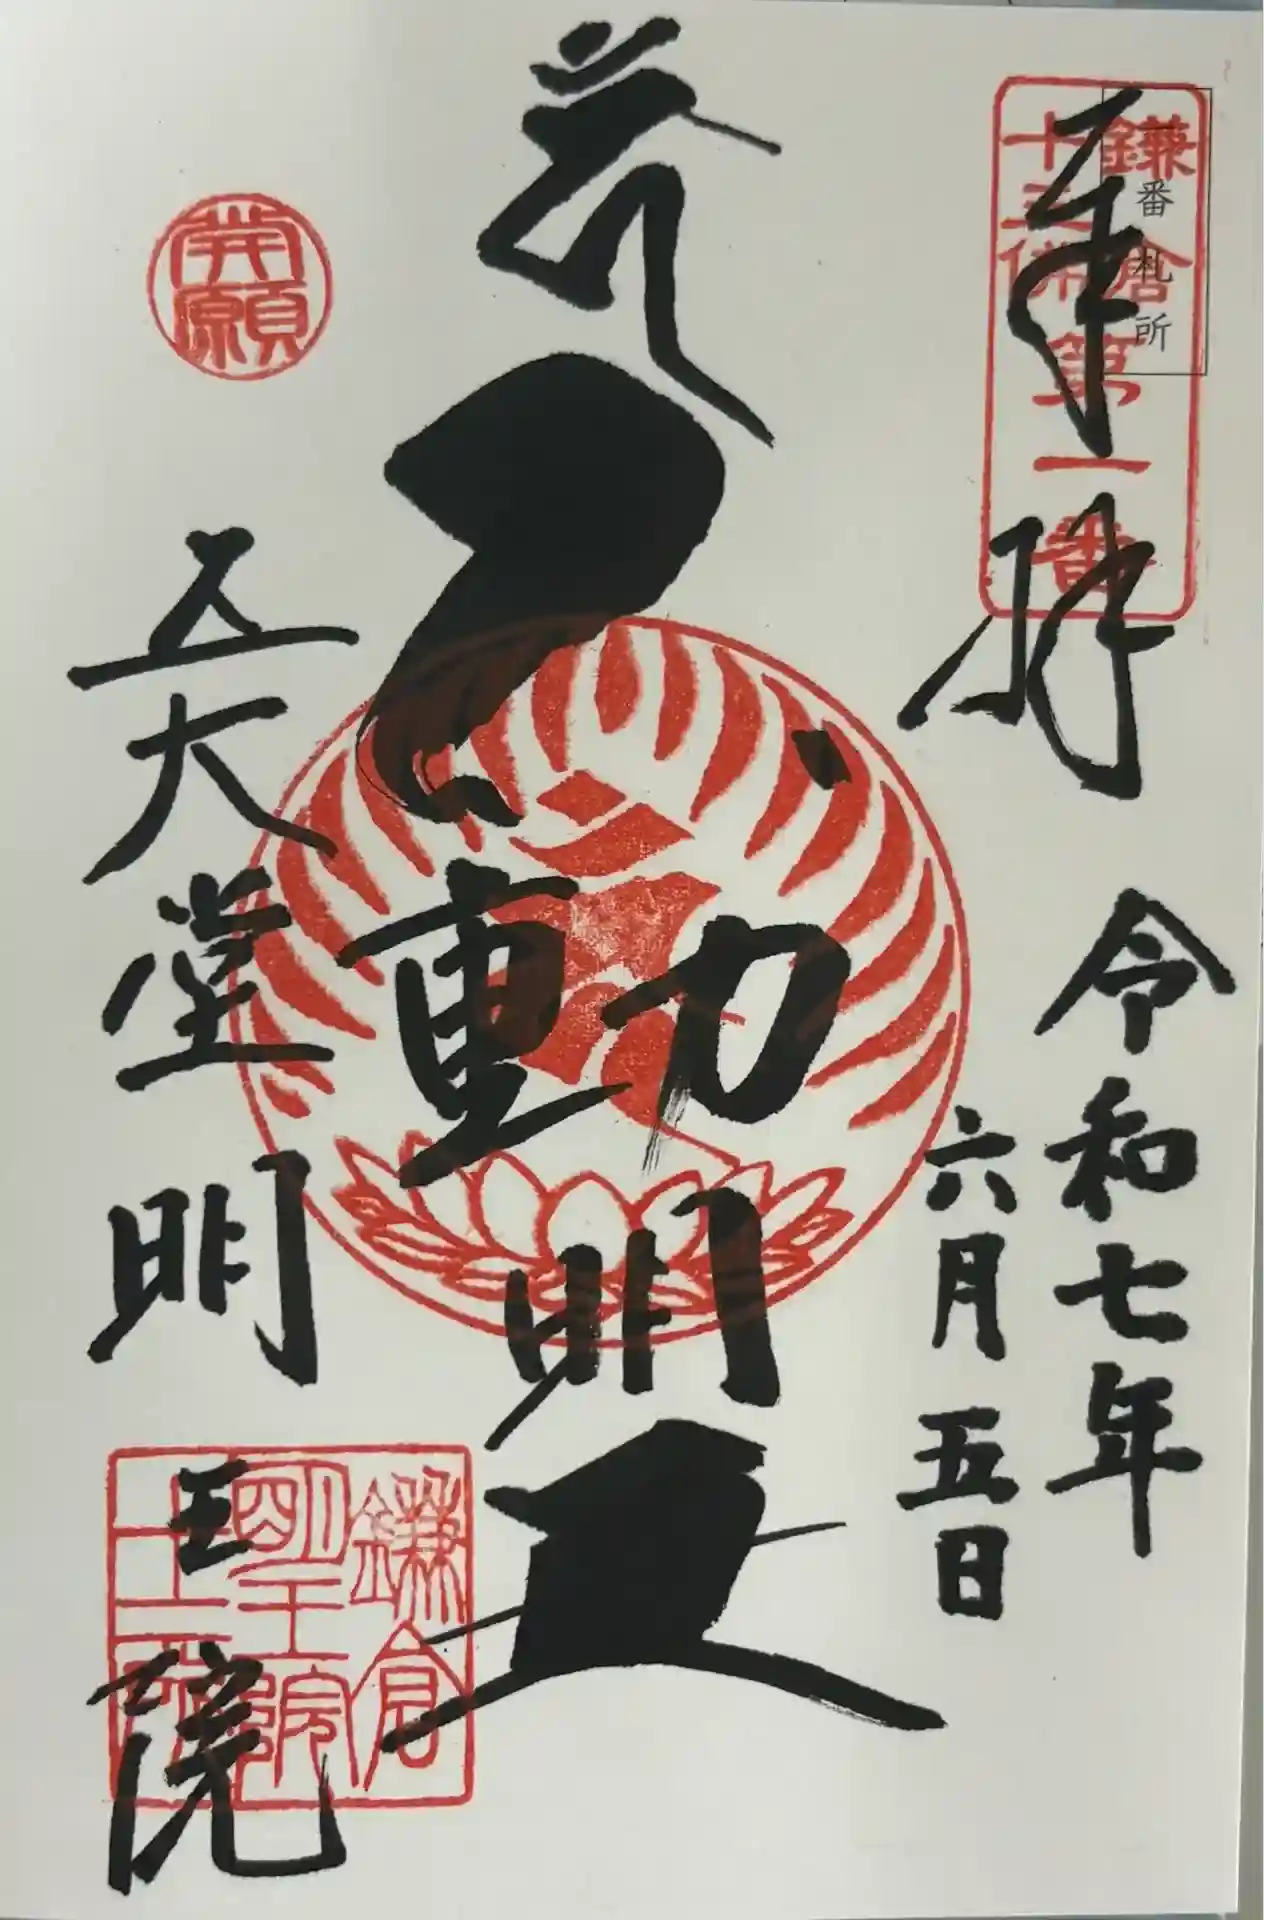 鎌倉
十三佛
第一番
番札所
奉拝
令和七年
六月五日
不動明王
開願
五大堂明王院
鎌倉
明王院